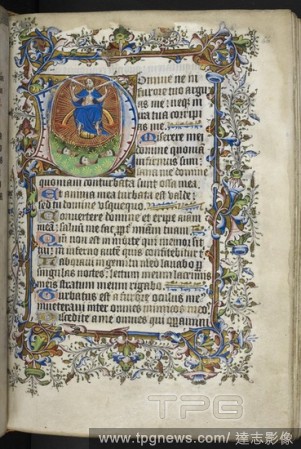 Domine ne in
furore tuo argu
as me: neq; in
ira tua corripi
as me. Miserere mei
domine quoniam
infirmus sum:
sana me domine
quoniam conturbata sunt ossa mea.
Et anima mea turbata est valde:
sed tu domine usquequo.
Convertere domine et eripe animam
meam: salvum me fac
Qm non est in morte qui memor sit
tui: in inferno autem quis confitebitur
Laboravi in gemitu meo lavabo p
singulas noctes: lectum meum lacrimis
meis stratum meum rigabo.
Turbatus est a furore oculus meus
inveteravi inter omnes inimicos meos
Discedite a me omnes qui operamini
TPG
www.tpgnews.com/ 達志影像